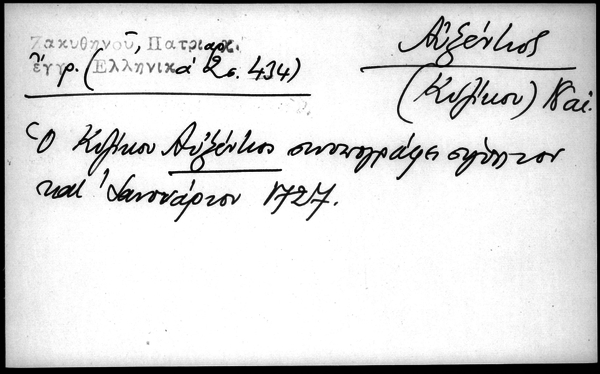 Ζακυθηνοῦ, Πατριαρχ.
ἔγγρ. (Ἑλληνικά 2 σ. 434)
Αὐξέντιος
(Κυζίκου) 18 αἰ.
Ὁ Κυζίκου Αὐξέντιος συνυπογράφει
καὶ Ἰανουάριον 1727.